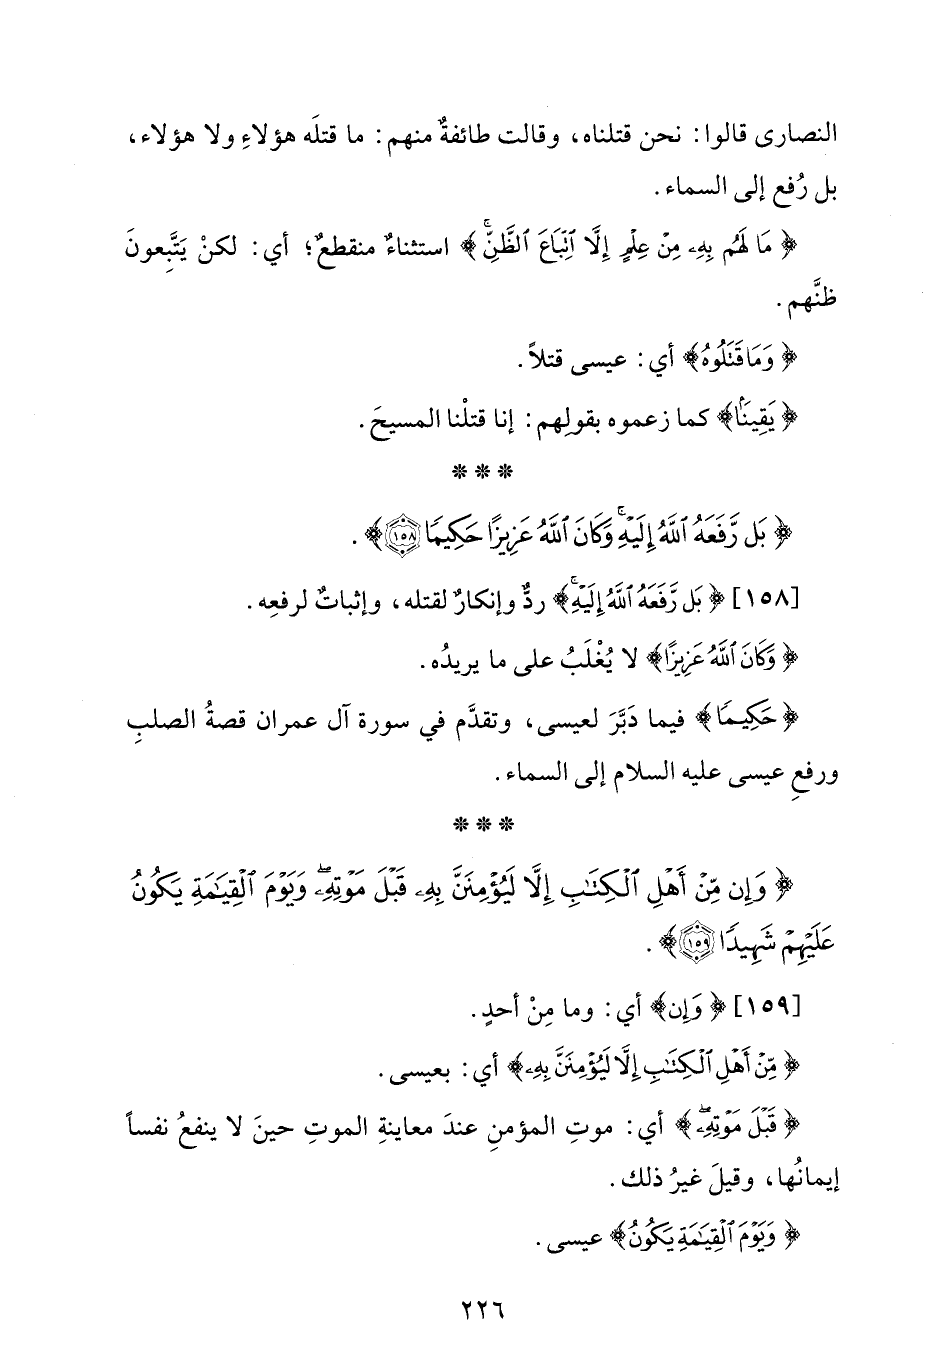 النصارى قالوا: نحن قتلناه، وقالت طائفةٌ منهم: ما قتلَه هؤلاءِ ولا هؤلاء،
بل رُفع إلى السماء.
﴿ مَا لَهُم بِهِۦ مِنْ عِلْمٍ إِلَّا ٱتِّبَاعَ ٱلظَّنِّ ۚ﴾ استثناءٌ منقطعٌ؛ أي: لكنْ يَتَّبِعونَ
ظنَّهم.
﴿ وَمَا قَتَلُوهُ﴾ أي: عيسى قتلاً.
﴿ يَقِينًۢا﴾ كما زعموه بقولِهم: إنا قتلْنا المسيحَ.
* * *
﴿ بَل رَّفَعَهُ ٱللَّهُ إِلَيْهِ ۚ وَكَانَ ٱللَّهُ عَزِيزًا حَكِيمًا ١٥٨﴾.
[١٥٨] ﴿ بَل رَّفَعَهُ ٱللَّهُ إِلَيْهِ ۚ﴾ ردٌّ وإنكارٌ لقتله، وإثباتٌ لرفعِه.
﴿ وَكَانَ ٱللَّهُ عَزِيزًا﴾ لا يُغْلَبُ على ما يريدُه.
﴿ حَكِيمًا﴾ فيما دَبَّرَ لعيسى، وتقدَّم في سورة آل عمران قصةُ الصلبِ
ورفعِ عيسى عليه السلام إلى السماء.
* * *
﴿ وَإِن مِّنْ أَهْلِ ٱلْكِتَٰبِ إِلَّا لَيُؤْمِنَنَّ بِهِۦ قَبْلَ مَوْتِهِۦ ۖ وَيَوْمَ ٱلْقِيَٰمَةِ يَكُونُ
عَلَيْهِمْ شَهِيدًا ١٥٩﴾.
[١٥٩] ﴿ وَإِن﴾ أي: وما مِنْ أحدٍ.
﴿ مِّنْ أَهْلِ ٱلْكِتَٰبِ إِلَّا لَيُؤْمِنَنَّ بِهِۦ﴾ أي: بعيسى.
﴿ قَبْلَ مَوْتِهِۦ ۖ﴾ أي: موتِ المؤمنِ عندَ معاينةِ الموتِ حينَ لا ينفعُ نفساً
إيمانُها، وقيلَ غيرُ ذلك.
﴿ وَيَوْمَ ٱلْقِيَٰمَةِ يَكُونُ﴾ عيسى.
٢٢٦